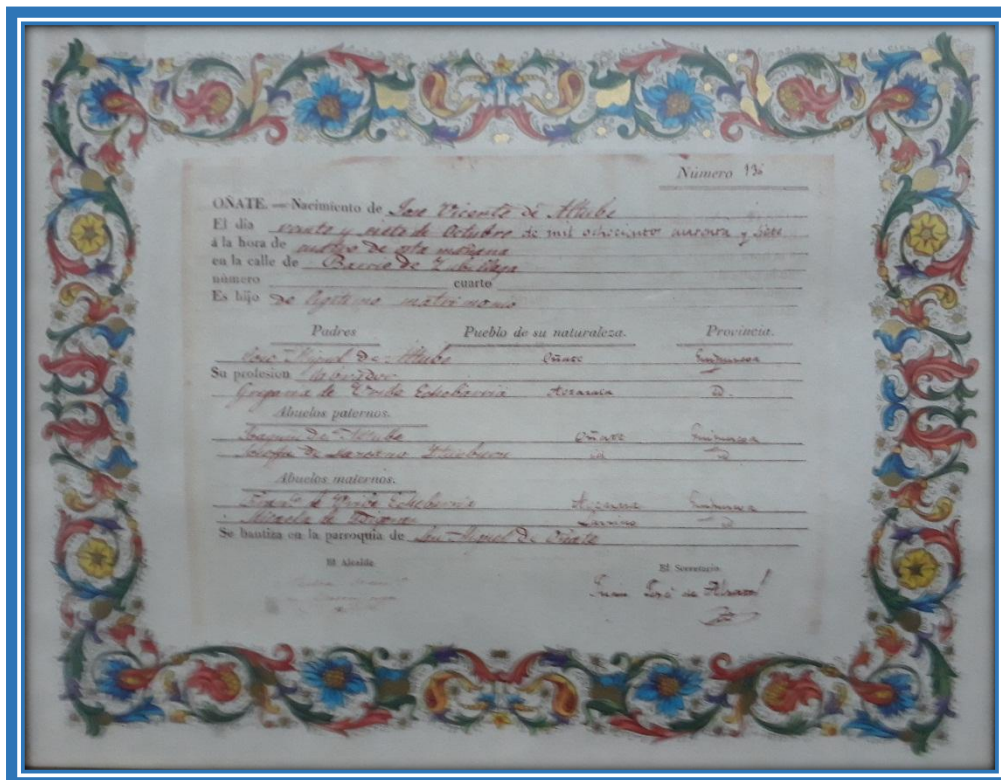 Número 136
OÑATE. — Nacimiento de Jose Vicente de Altube
El dia veinte y siete de Octubre de mil ochocientos cuarenta y siete
á la hora de cuatro de esta mañana
en la calle de Barrio de Zubillaga
número cuarto
Es hijo de legitimo matrimonio
Padres Pueblo de su naturaleza. Provincia.
Jose Miguel de Altube Oñate Guipuzcoa
Su profesion labrador
Gregoria de Uribe Echebarria id.
Abuelos paternos.
Joaquin de Altube Oñate Guipuzcoa
Josefa de id id
Abuelos maternos.
de Uribe Echebarria Guipuzcoa
Micaela de id
Se bautiza en la parroquia de San Miguel de Oñate
El Alcalde El Secretario
Juan José de